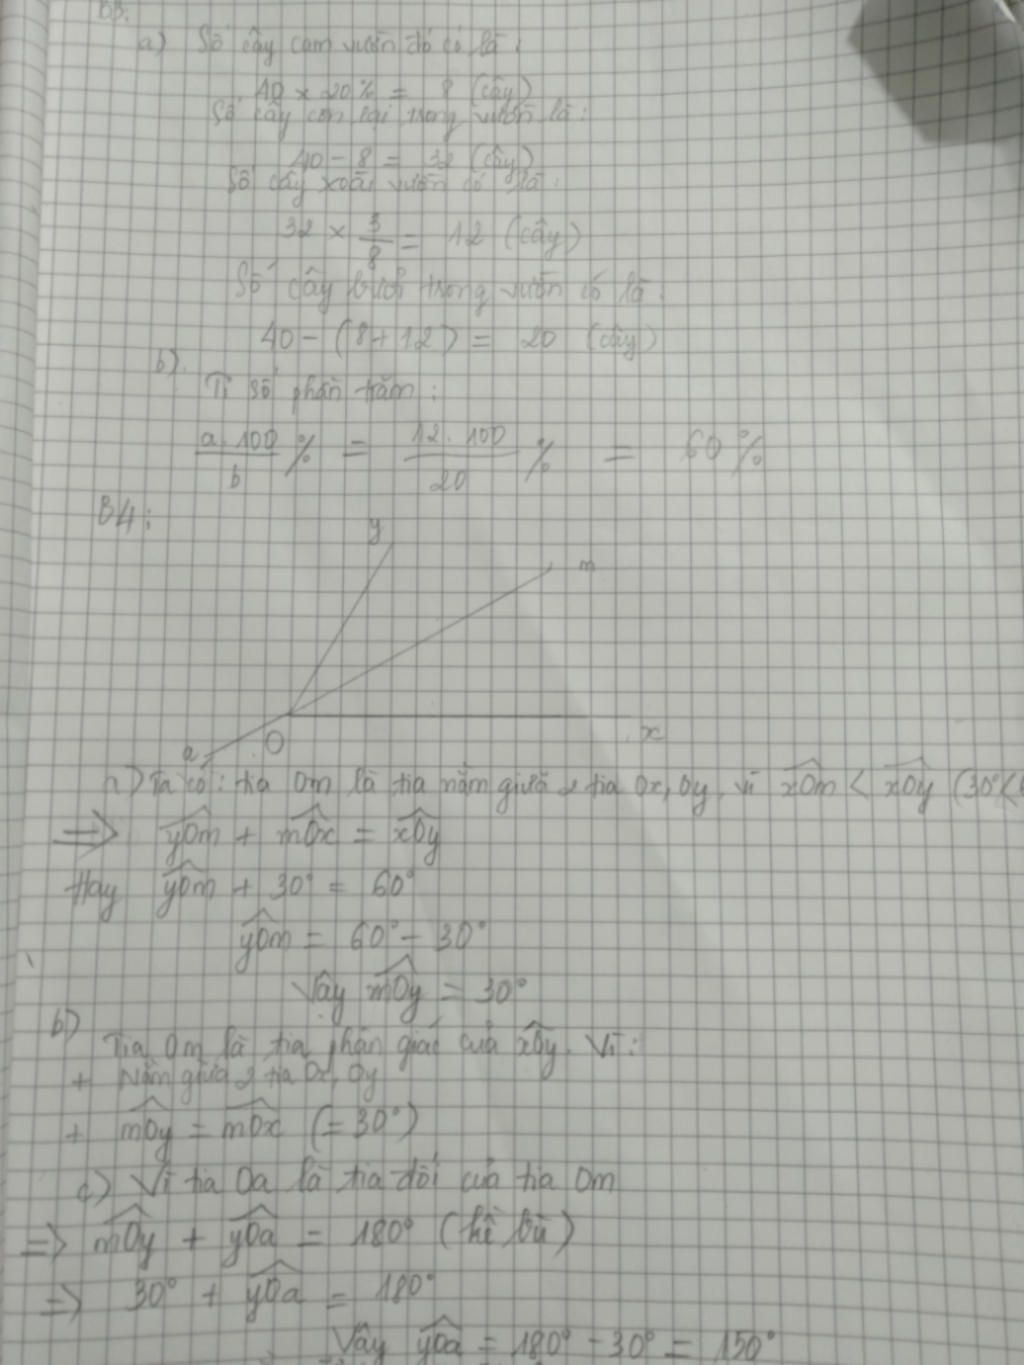 B3.
a) Số cây cam vườn đó có là:
40 × 20% = 8 (cây)
Số cây còn lại trong vườn là:
40 - 8 = 32 (cây)
Số cây xoài vườn có là:
32 × 3/8 = 12 (cây)
Số cây bưởi trong vườn có là:
40 - (8 + 12) = 20 (cây)
b).
Tỉ số phần trăm:
a.100/b % = 12.100/20 % = 60%
B4:
y
m
x
O
a
a) Ta có: tia Om là tia nằm giữa 2 tia Ox, Oy, vì xOm < xOy (30° <
=> yOm + mOx = xOy
Hay yOm + 30° = 60°
yOm = 60° - 30°
Vậy mOy = 30°
b)
Tia Om là tia phân giác của xOy. Vì:
+ Nằm giữa 2 tia Ox, Oy
+ mOy = mOx (= 30°)
c) Vì tia Oa là tia đối của tia Om
=> mOy + yOa = 180° (kề bù)
=> 30° + yOa = 180°
Vậy yOa = 180° - 30° = 150°